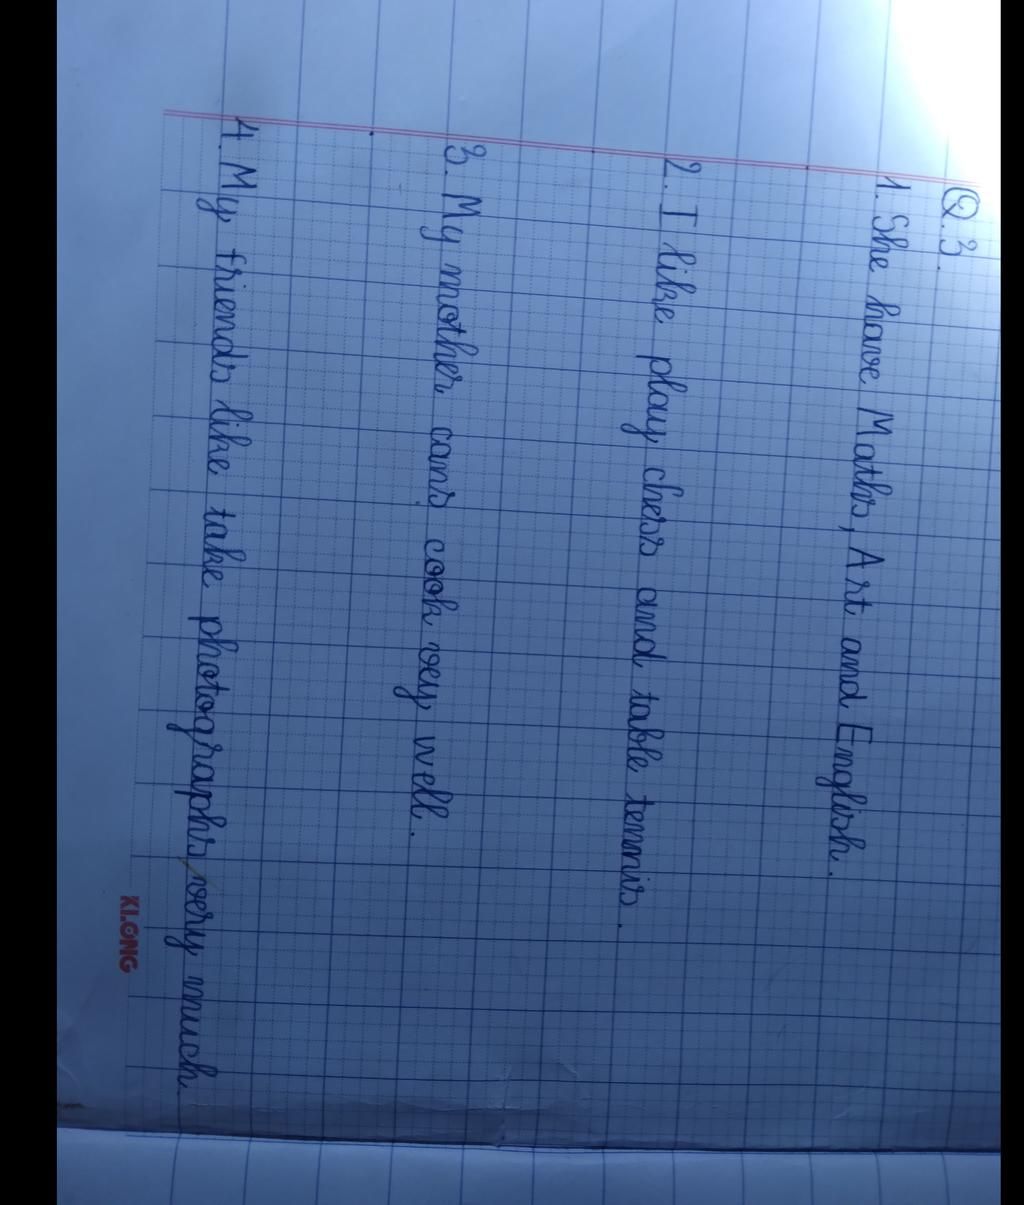 Q.3.
1. She have Maths, Art and English.
2. I like play chess and table tennis.
3. My mother cans cook vey well.
4. My friends like take photographs very much
KLONG